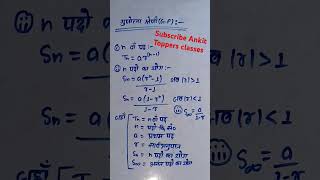 गुणोत्तर श्रेणी (G.P) :-
Subscribe Ankit
Toppers classes
(i) n वाँ पद :-
Tn = ar^(n-1)
(ii) n पदों का योग :-
Sn = a(r^n - 1) / r - 1 जब |r| > 1
Sn = a(1 - r^n) / 1 - r जब |r| < 1
(iii) S∞ = a / 1 - r
जहाँ
Tn = n वाँ पद
n = पदों की सं०
a = प्रथम पद
r = सार्वअनुपात
Sn = n पदों का योग
S∞ = अनन्त पदों का योग